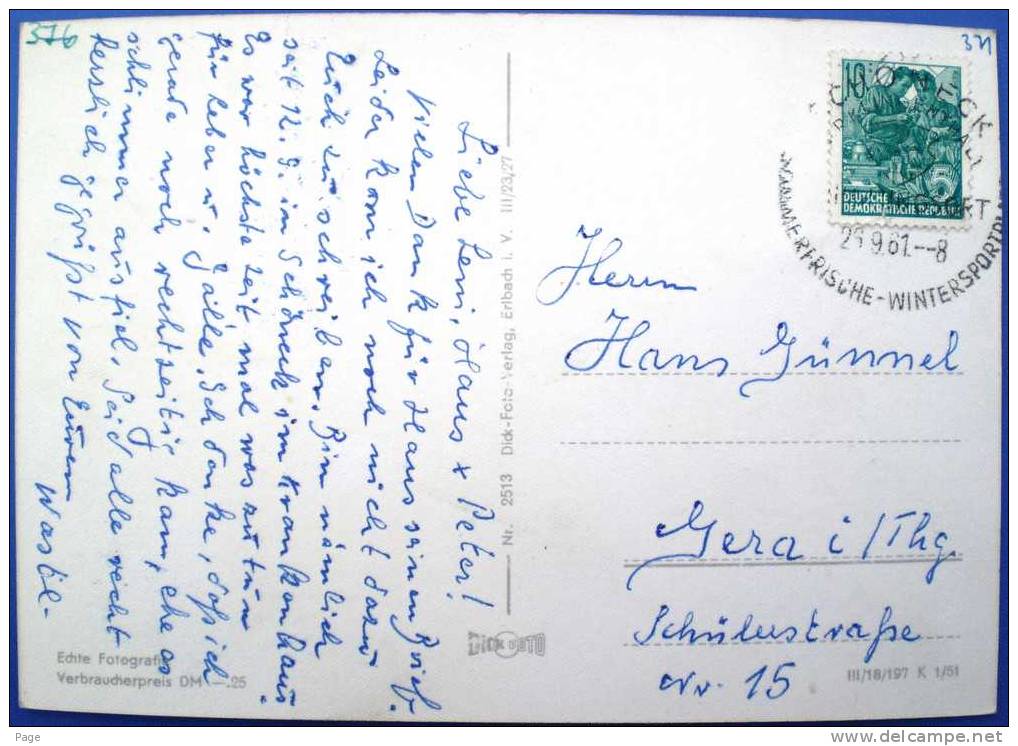 376
371
Liebe Leni, Haus x Peter!
Vielen Dank für Hans seinen Brief.
Leider kam ich noch nicht dazu
Euch zu schreiben. Bin nämlich
seit 12.9. im Schöneck im Krankenhaus.
Es war höchste Zeit mal was zu tun
für Leber u. Galle. Ich denke, daß ich
gerade noch rechtzeitig kam, ehe es
schlimmer ausfiel. Seid alle recht
herzlich gegrüßt von Eurem
Echte Fotografie
Verbraucherpreis DM -.25
Nr. 2513 Dick-Foto-Verlag, Erlbach i. V. III/23/27
DICK FOTO
10
5
DEUTSCHE
DEMOKRATISCHE REPUBLIK
SCHÖNECK
9.61.--8
SOMMERFRISCHE-WINTERSPORTPLATZ
Herrn
Hans Günnel
Gera i/Thg.
Schülerstraße
Nr. 15
III/18/197 K 1/51
Page
http://www.delcampe.net